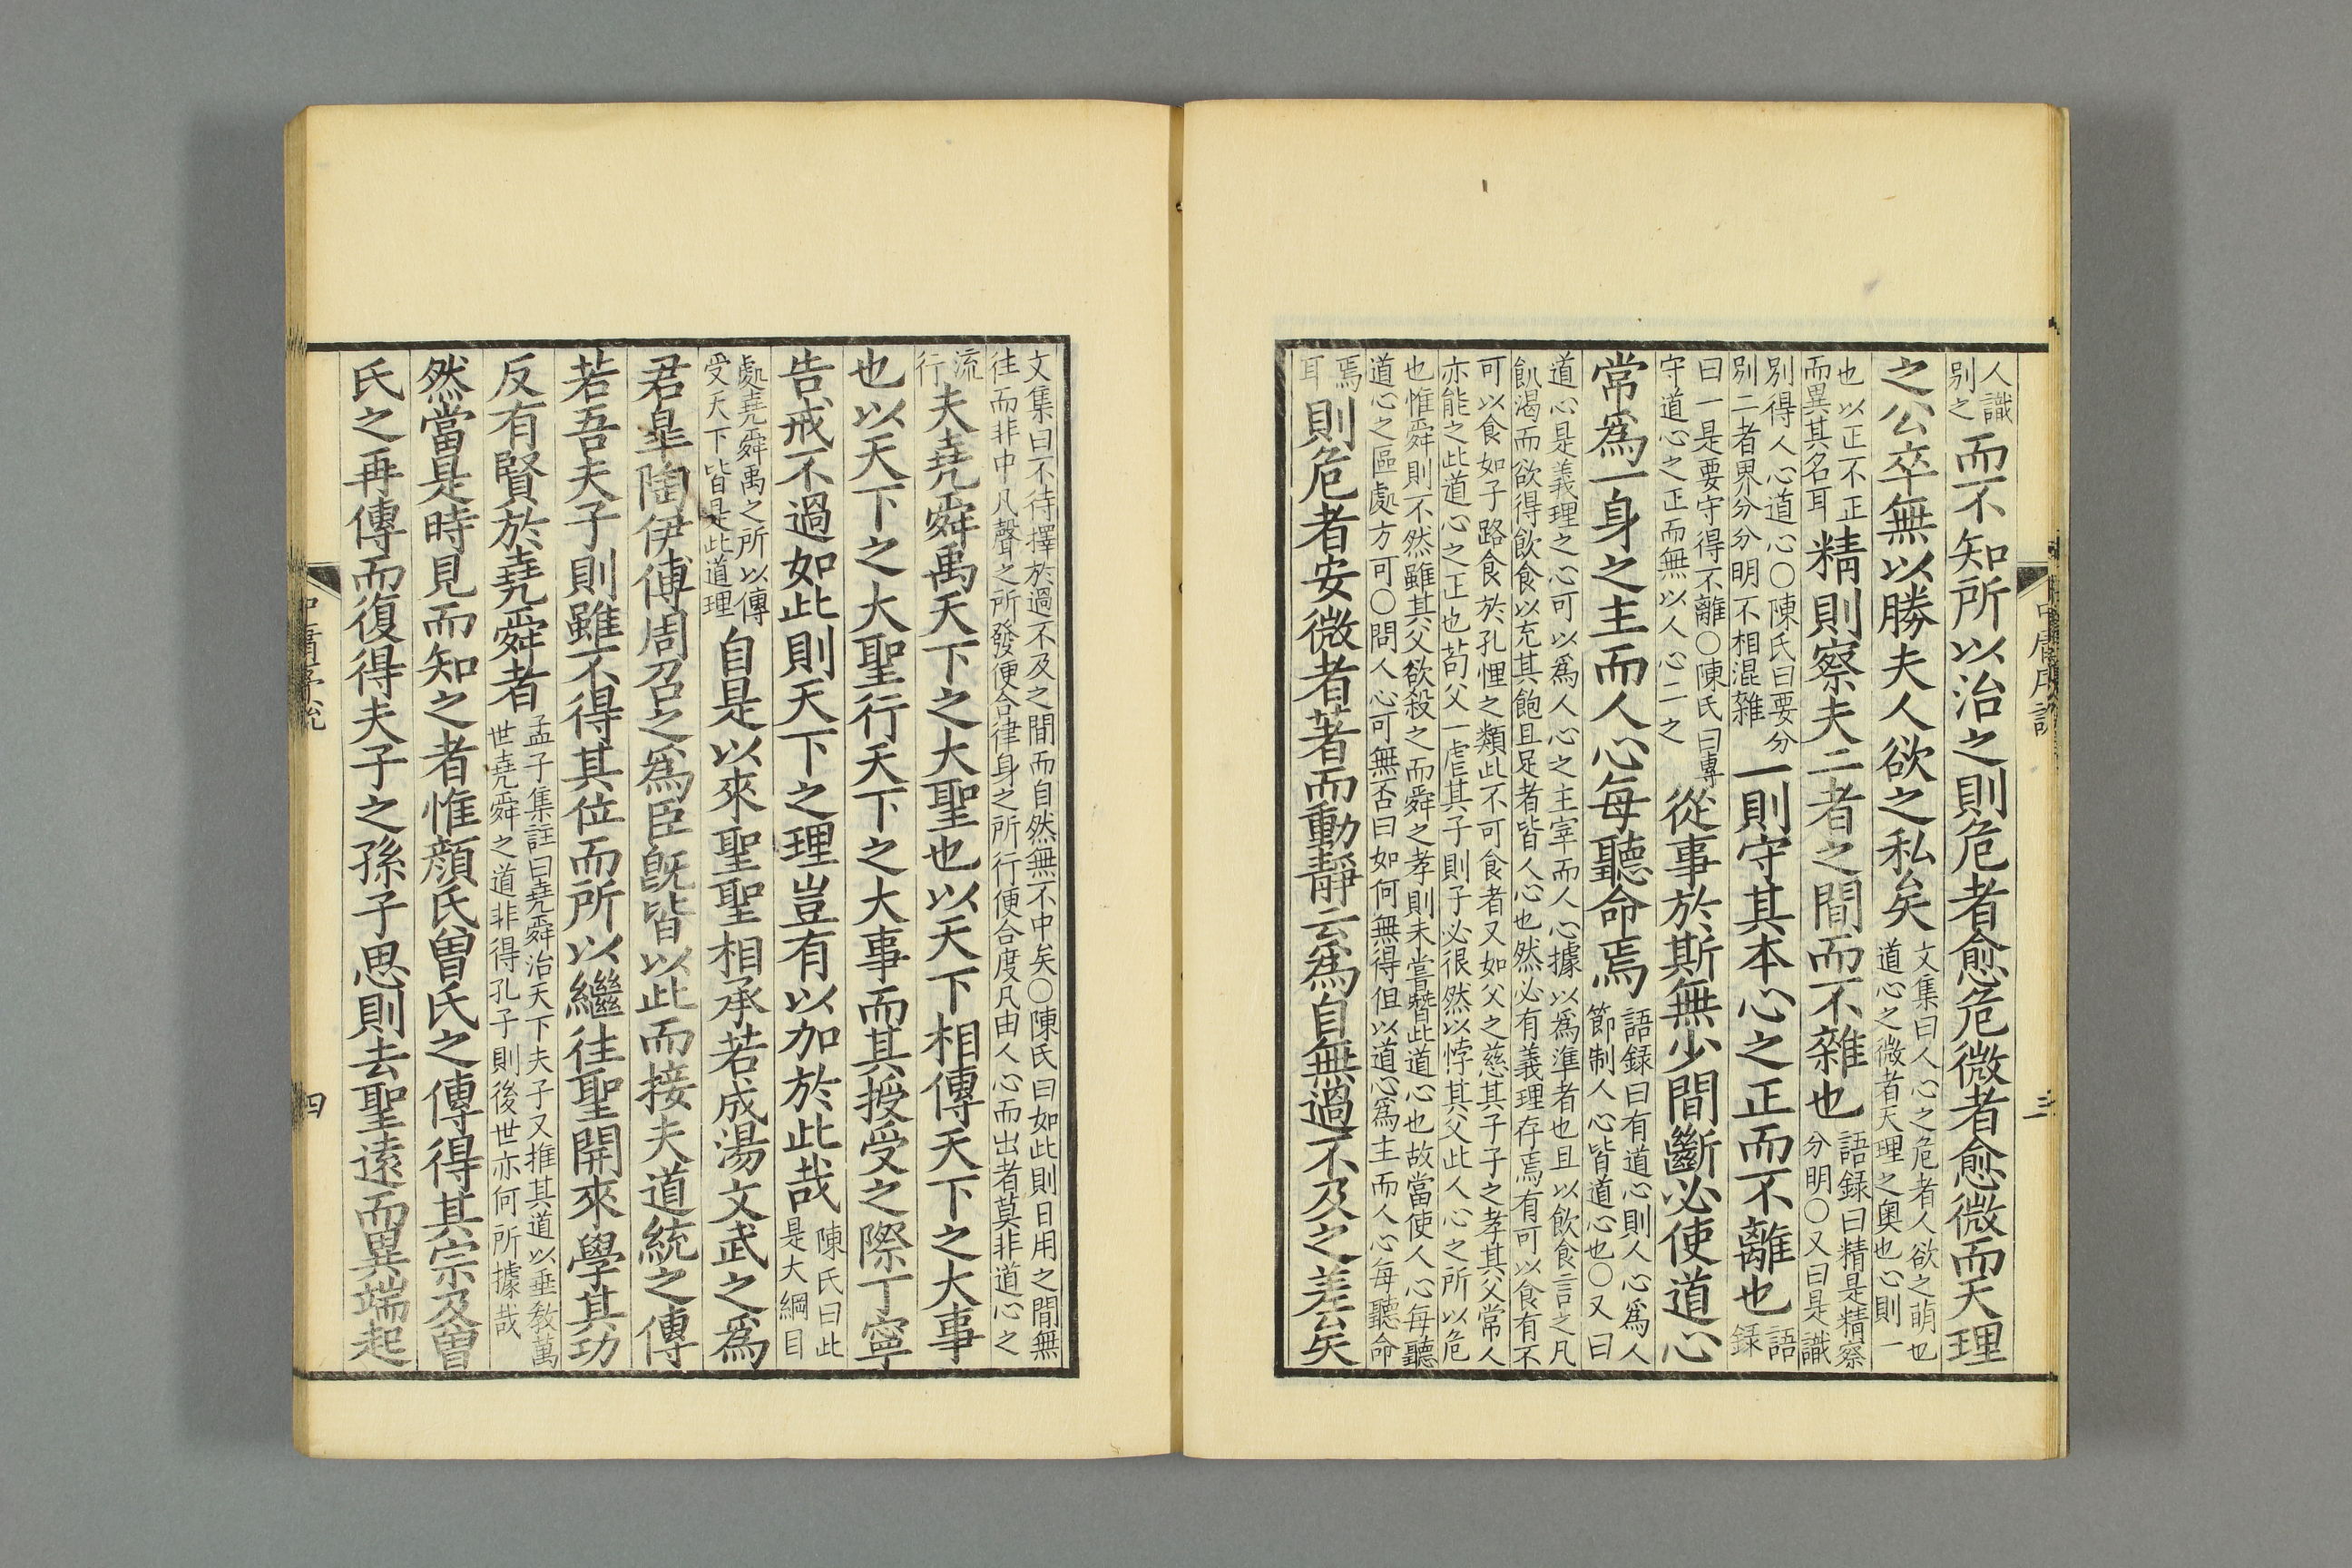 人識別之而不知所以治之則危者愈危微者愈微而天理
之公卒無以勝夫人欲之私矣文集曰人心之危者人欲之萌也道心之微者天理之奧也心則一
也以正不正而異其名耳精則察夫二者之間而不雜也語録曰精是精察分明○又曰是識
別得人心道心○陳氏曰要分別二者界分分明不相混雜一則守其本心之正而不離也語録
曰一是要守得不離○陳氏曰專守道心之正而無以人心二之從事於斯無少間斷必使道心
常爲一身之主而人心每聽命焉語録曰有道心則人心爲人節制人心皆道心也○又曰
道心是義理之心可以爲人心之主宰而人心據以爲準者也且以飲食言之凡
飢渴而欲得飲食以充其飽且足者皆人心也然必有義理存焉有可以食有不
可以食如子路食於孔悝之類此不可食者又如父之慈其子子之孝其父常人
亦能之此道心之正也茍父一虐其子則子必很然以悖其父此人心之所以危
也惟舜則不然雖其父欲殺之而舜之孝則未嘗替此道心也故當使人心每聽
道心之區處方可○問人心可無否曰如何無得但以道心爲主而人心每聽命
焉耳則危者安微者著而動靜云爲自無過不及之差矣
中庸序
三
文集曰不待擇於過不及之間而自然無不中矣○陳氏曰如此則日用之間無
往而非中凡聲之所發便合律身之所行便合度凡由人心而出者莫非道心之
流行夫堯舜禹天下之大聖也以天下相傳天下之大事
也以天下之大聖行天下之大事而其授受之際丁寧
告戒不過如此則天下之理豈有以加於此哉陳氏曰此是大綱目
處堯舜禹之所以傳受天下皆是此道理自是以來聖聖相承若成湯文武之爲
君皐陶伊傅周召之爲臣旣皆以此而接夫道統之傳
若吾夫子則雖不得其位而所以繼往聖開來學其功
反有賢於堯舜者孟子集註曰堯舜治天下夫子又推其道以垂敎萬世堯舜之道非得孔子則後世亦何所據哉
然當是時見而知之者惟顔氏曾氏之傳得其宗及曾
氏之再傳而復得夫子之孫子思則去聖遠而異端起
四